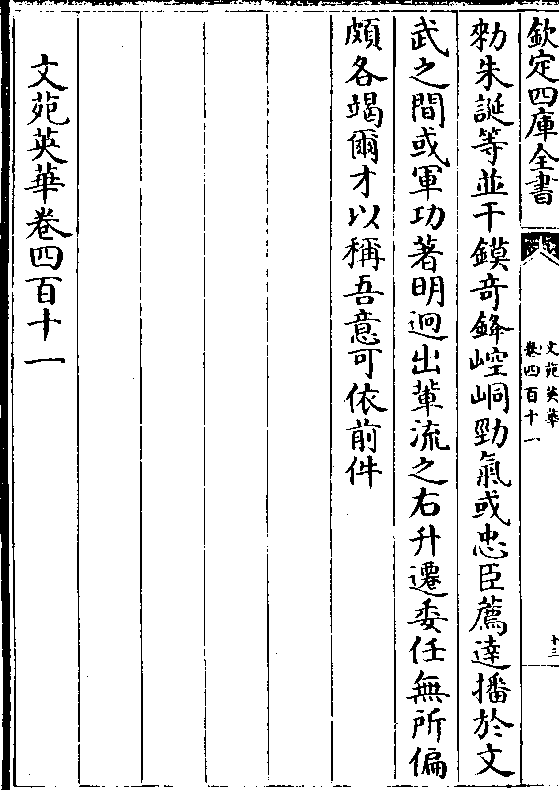 欽定四庫全書
文苑英華
卷四百十一
十三
勑朱誕等並干鏌奇鋒崆峒勁氣或忠臣薦達播於文
武之間或軍功著明迥出軰流之右升遷委任無所偏
頗各竭爾才以稱吾意可依前件
文苑英華卷四百十一